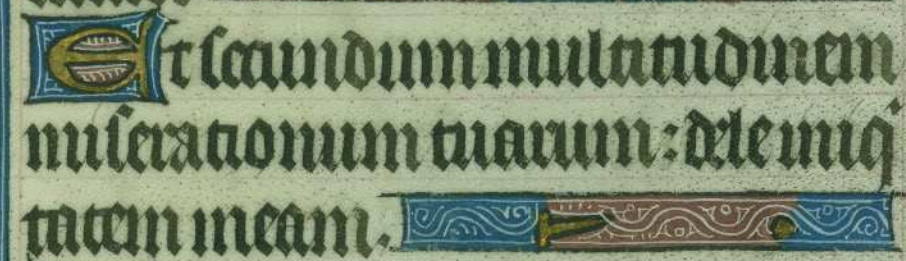 Et secundum multitudinem
miserationum tuarum: dele iniq
tatem meam.